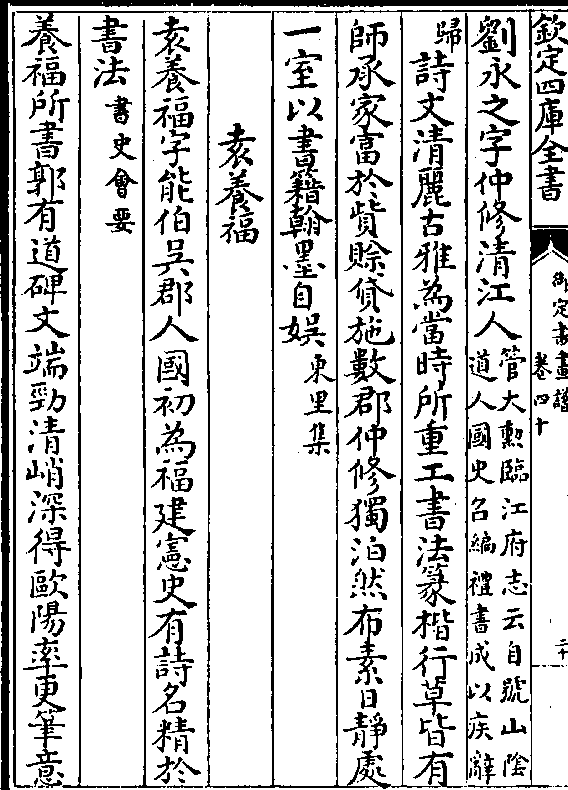 欽定四庫全書
御定書畫譜
卷四十
二十
劉永之字仲修清江人管大勲臨江府志云自號山陰
道人國史召編禮書成以疾辭
歸詩文清麗古雅為當時所重工書法篆楷行草皆有
師承家富於貲賖貸施數郡仲修獨泊然布素日靜處
一室以書籍翰墨自娱東里集
袁養福
袁養福字能伯吳郡人國初為福建憲史有詩名精於
書法書史會要
養福所書郭有道碑文端勁清峭深得歐陽率更筆意